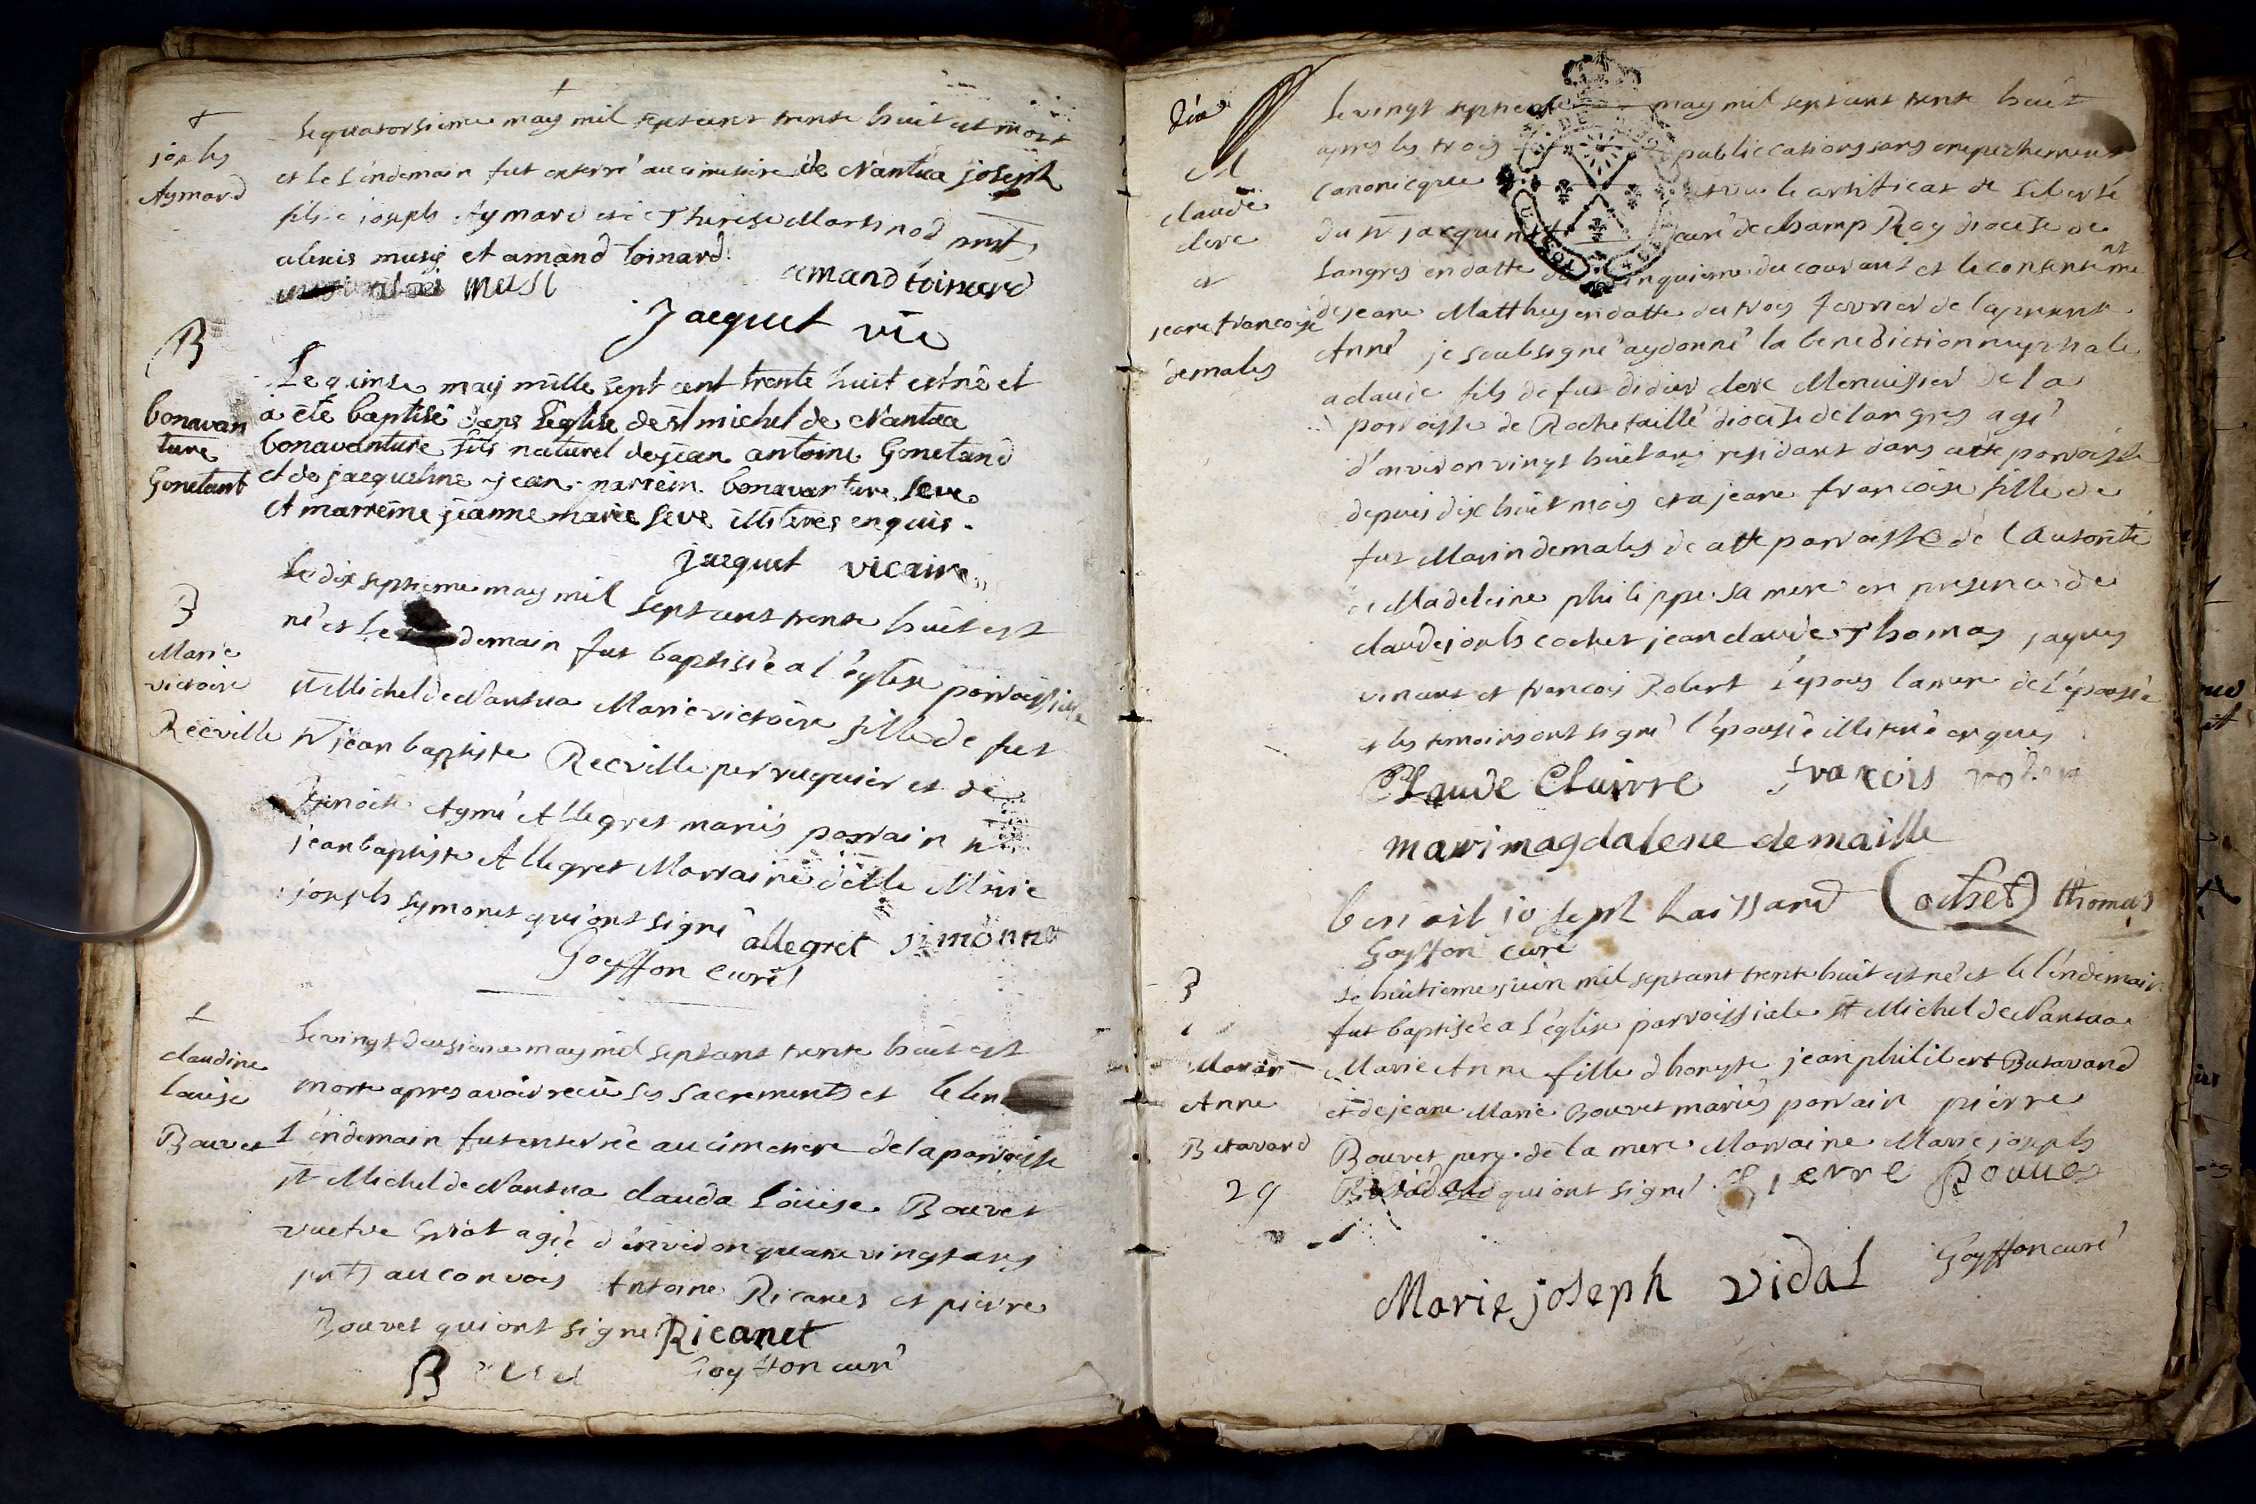 †
joseph
Aymard
Le quatorsieme may mil sept cent trente huit est mort
et le l'endemain fut enterré au cimetiere de Nantua joseph
fils de joseph Aymard et de Therese Martinod pnts
alexis musy et amand toinard.
musi amand toinard
Jacquet vic
B
bonavan
ture
Gonetant
Le quinse may mille sept cent trente huit est né et
a été baptisé dans l'eglise de st michel de Nantua
bonavanture fils naturel de jean antoine Gonetand
et de jacqueline jean parrein bonavanture seve
et marreine jeanne marie seve illiteres enquis.
jacquet vicaire
B
Marie
victoire
Recville
Le dix septieme may mil sept cent trente huit est
né et le demain fut baptisée a l'eglise parroissiale
st Michel de Nantua Marie victoire fille de fut
sr jean baptiste Recville perruquier et de
Benoite Aymé Allegret mariés parrain sr
jean baptiste Allegret Marraine delle Marie
joseph symonet qui ont signé allegret simonnet
Goyffon curé
†
claudine
louise
Bouvet
Le vingt deusieme may mil sept cent trente huit est
morte apres avoir reçu ses sacrements et le len
l'endemain fut enterrée au cimetiere de la parroisse
st Michel de Nantua clauda Louise Bouvet
vuefve agée d'environ quatre vingt ans
pnts au convois Antoine Ricanet et pierre
Bouvet qui ont signé Ricanet
B Goyffon curé
M
claude
clere
et
jeane francoise
demales
Le vingt septieme may mil sept cent trente huit
apres les trois publiccations sans empechement
canonicque et vu le certificat de liberté
du sr jacquinet curé de champ Roy diocese de
Langres en datte du cinquieme du courant et le consentement
de jeane Matthey en datte du trois fevrier de la presente
Anné je soubsigné ay donné la benediction nuptiale
a claude fils de fut didier clere Menuisier de la
parroisse de Rochetaillé diocese de langres agé
d'environ vingt huit ans residant dans cette parroisse
depuis dix huit mois et a jeane françoise fille de
fut Marin demales de cette parroisse de l'autorité
de Madeleine philippe sa mere en presence de
claude joseph cochet jean claude Thomas jaques
vincent et francois Robert l'epous la mere de l'épousée
et les temoins ont signé l'épousée illiterée enquis
Claude Cluirre francois robert
mari magdalene demaille
benoit joseph haissard Cochet thomas
Goyffon curé
B
Marie
Anne
Butavand
29
Le huitieme juin mil sept cent trente huit est né et le l'endemain
fut baptisée a l'église parroissiale st Michel de Nantua
Marie Anne fille d'honeste jean philibert Butavand
et de jeane Marie Bouvet mariés parrain pierre
Bouvet pere de la mere Marraine Marie joseph
vidal qui ont signé pierre Bouvet
Marie joseph vidal Goyffon curé